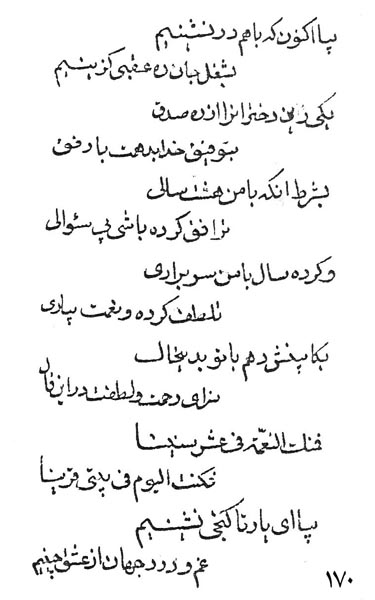 بیا اکنون که با هم در نشینیم
بشغل جان ره عقبی گزینیم
یکی زین دخترانرا از ره صدق
بتوفیق خدا بدهمت با رفق
بشرط انکه با من هشت سالی
ترافق کرده باشی بی سئوالی
وکرده سال با من سر براری
تلطف کرده و نعمت بیاری
یکا بخش دهم با تو بدیحال
برای رحمت و لطفت در این فال
فنلت النعمة فی عشر سنینا
فکنت الیوم فی بیتی قرینا
بیا ای یار تا کنجی نشینیم
غم و درد جهان از عشق چینیم
۱۷۰